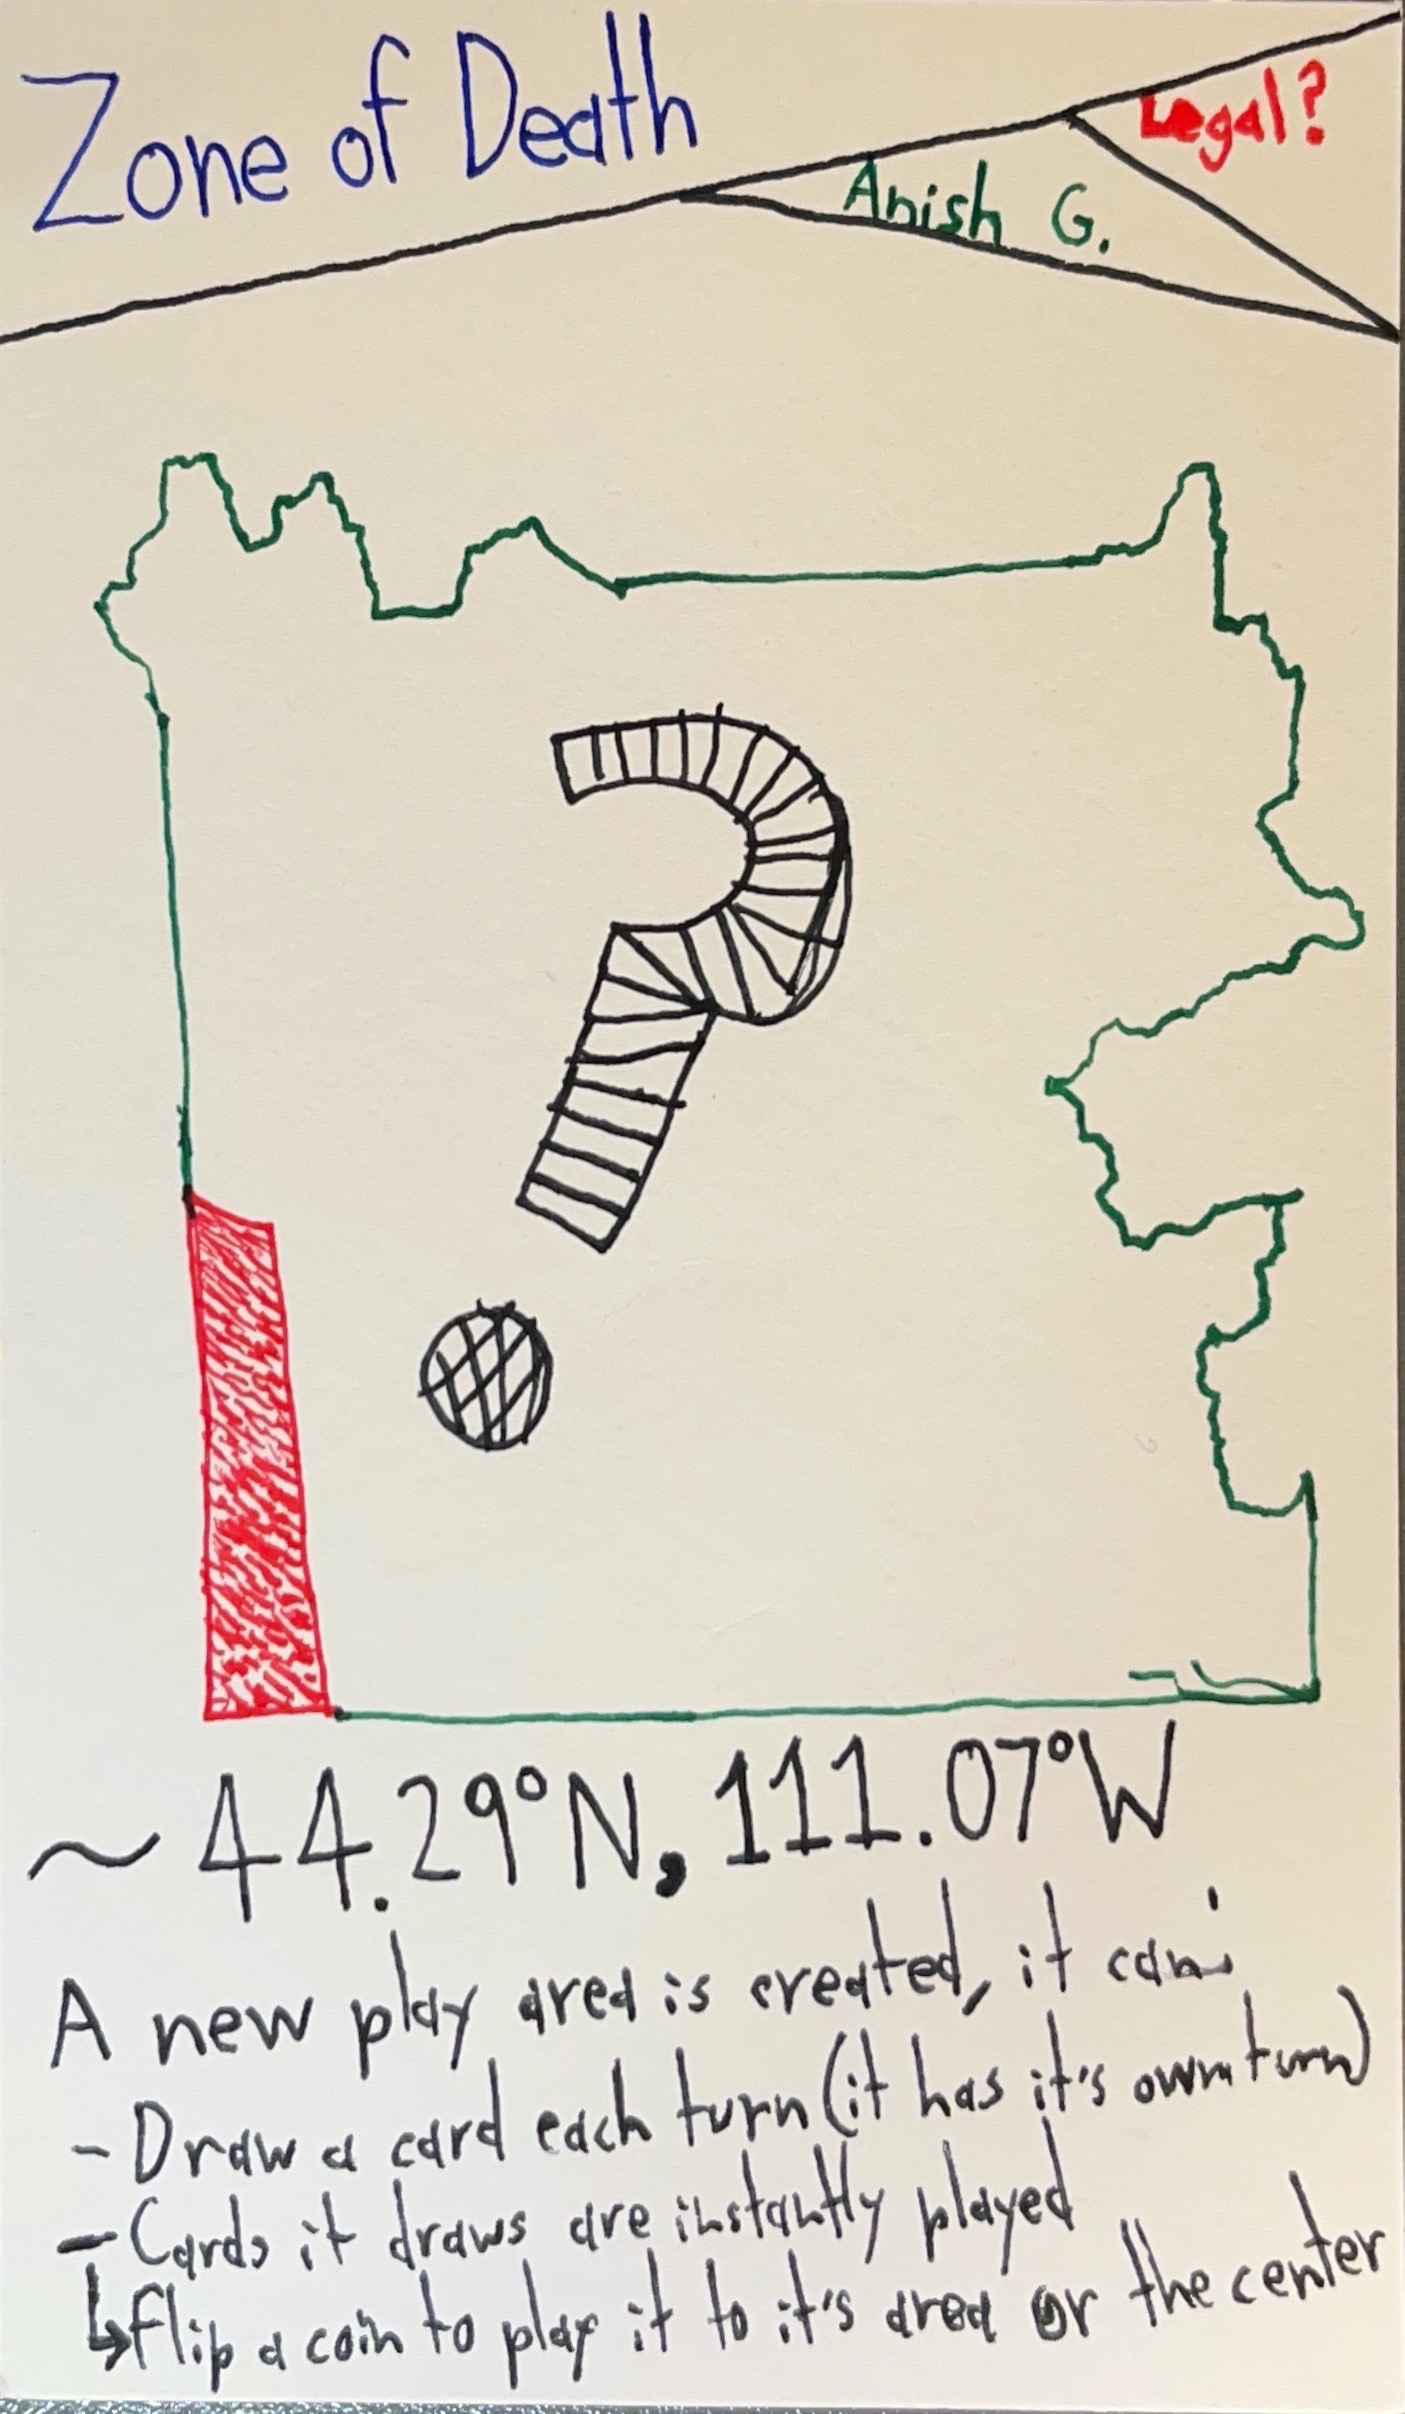 Zone of Death
Legal?
Anish G.
?
~44.29°N, 111.07°W
A new play area is created, it can:
- Draw a card each turn (it has it's own turn)
- Cards it draws are instantly played
↳ flip a coin to play it to it's area or the center